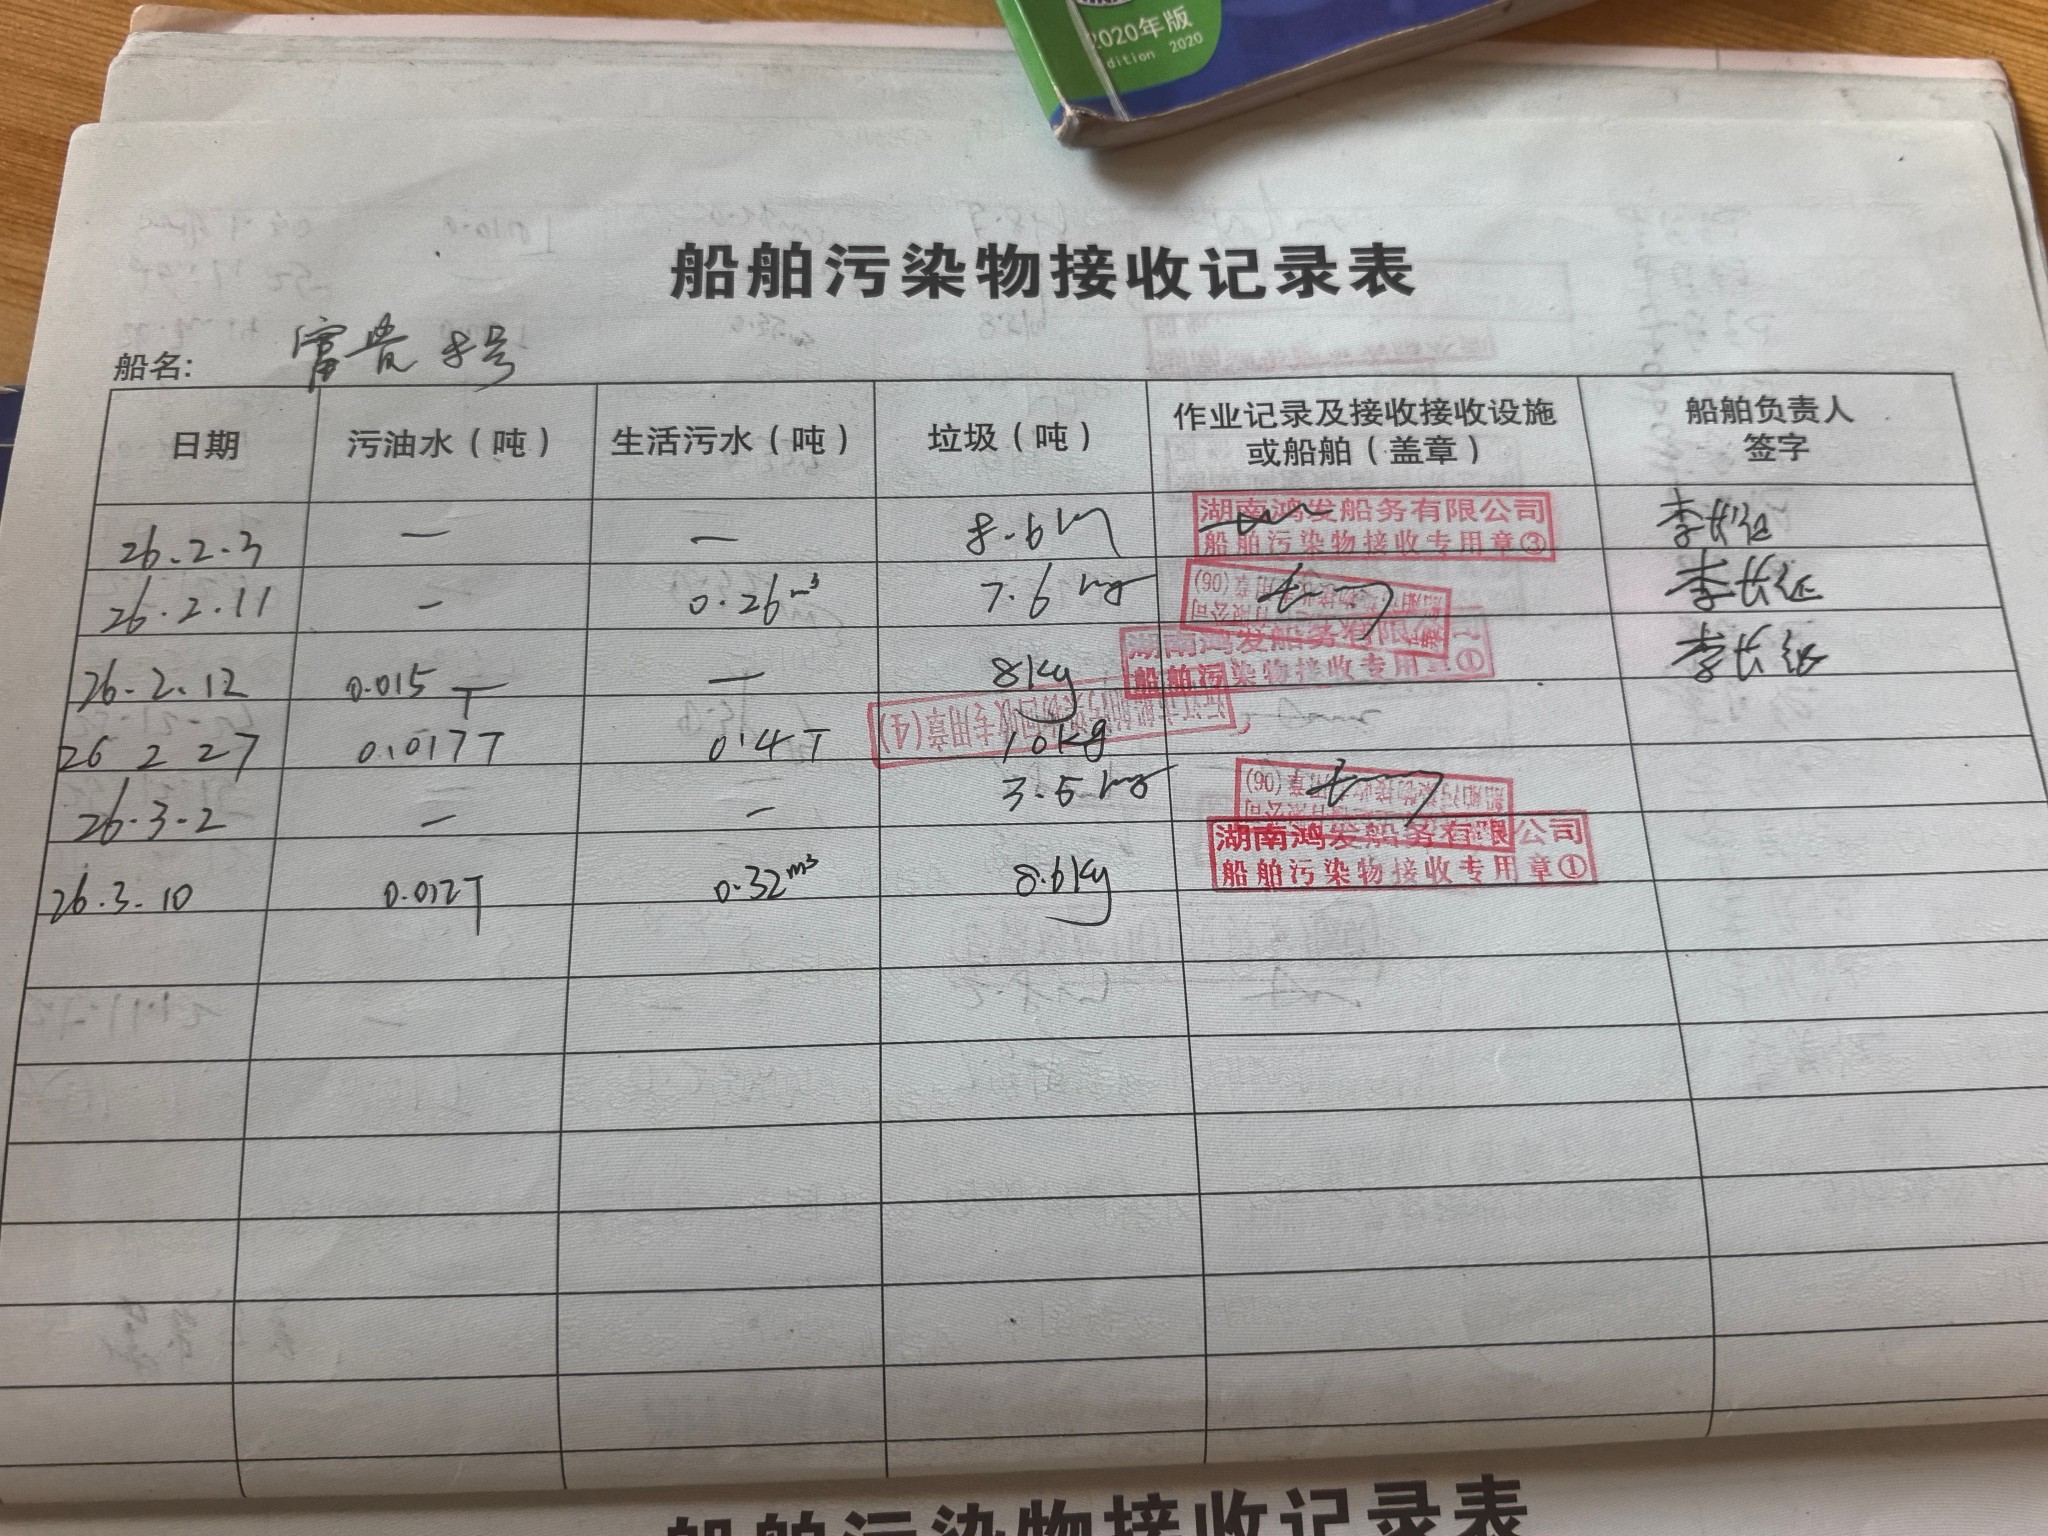 2020年版
dition 2020
船舶污染物接收记录表
船名: 富贵 号
日期 污油水（吨） 生活污水（吨） 垃圾（吨） 作业记录及接收接收设施或船舶（盖章） 船舶负责人签字
26.2.3 — — 8.6 湖南鸿发船务有限公司 船舶污染物接收专用章③ 李长征
26.2.11 — 0.26m³ 7.6 kg 李长征
26.2.12 0.015T — 8kg 湖南鸿发船务有限公司 船舶污染物接收专用章① 李长征
26 2 27 0.017T 0.4T 10kg
26.3.2 — — 3.5 kg
26.3.10 0.012T 0.32m³ 8.6kg 湖南鸿发船务有限公司 船舶污染物接收专用章①
船舶污染物接收记录表